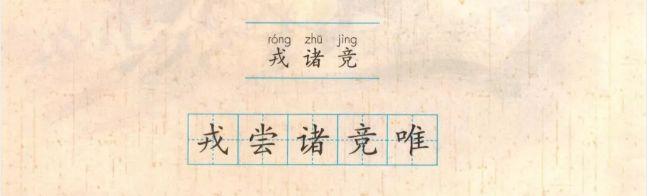 róng zhū jìng
戎 诸 竞
戎 尝 诸 竞 唯